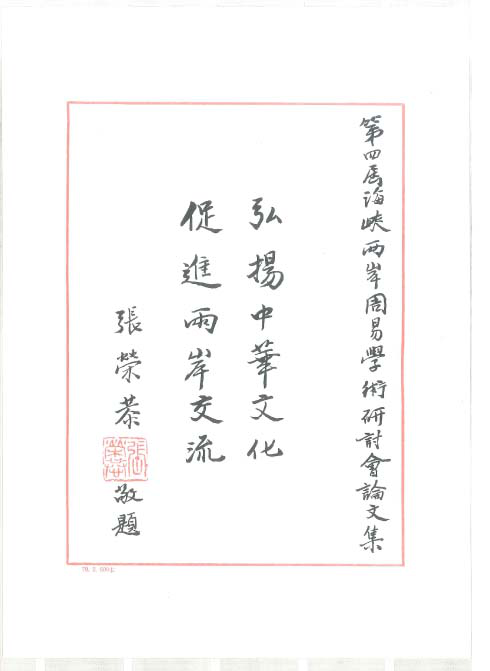 第四屆海峽两岸周易學術研討會論文集
弘揚中華文化
促進兩岸交流
張榮恭
敬題
張榮恭